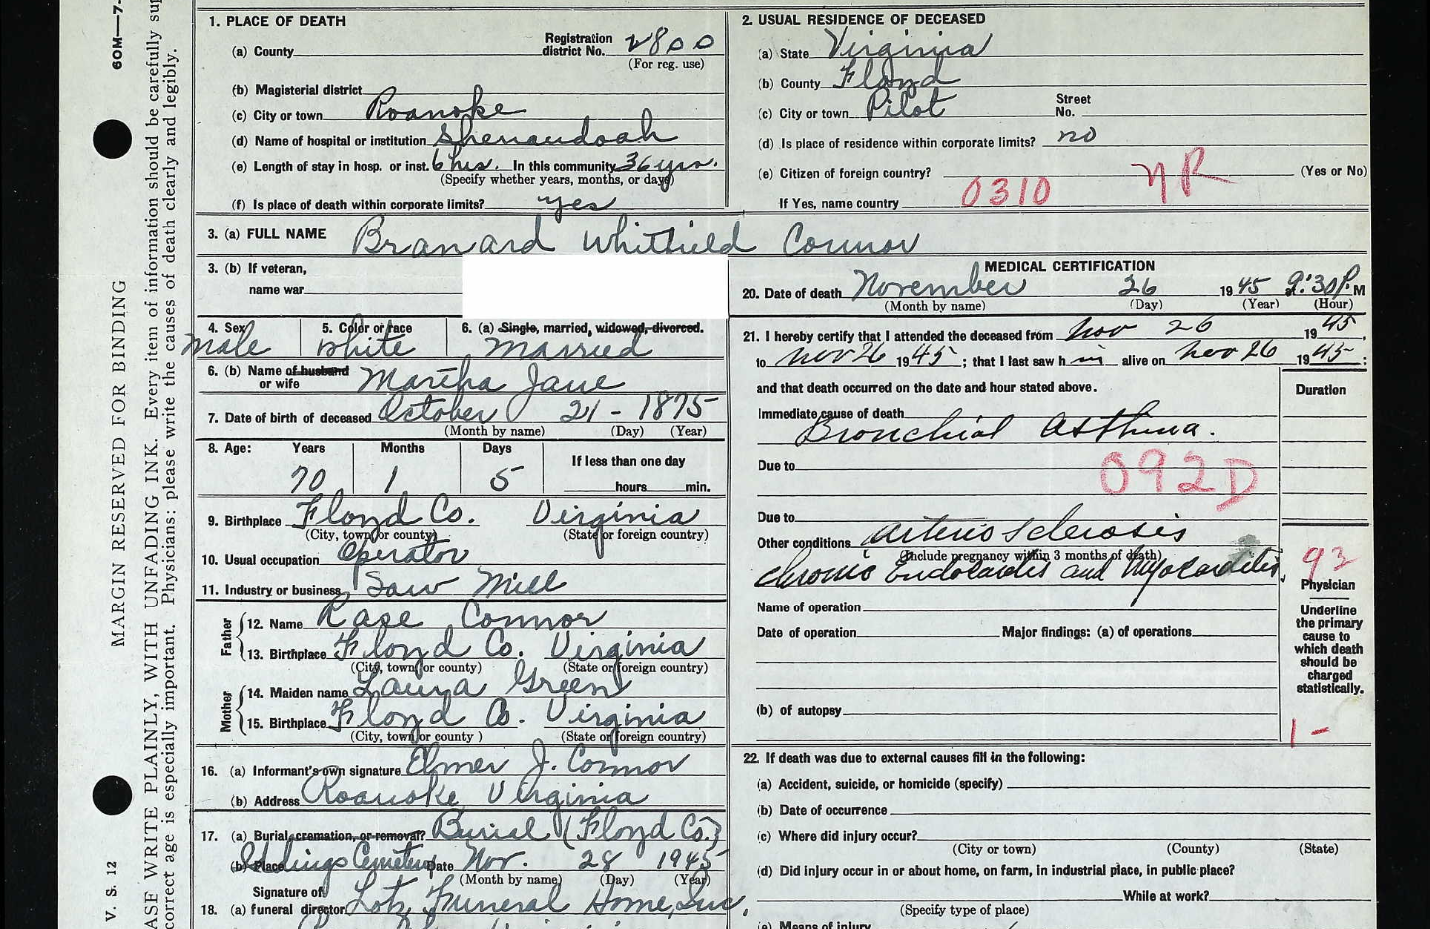 60M—7-
MARGIN RESERVED FOR BINDING
V. S. 12
ASE WRITE PLAINLY, WITH UNFADING INK. Every item of information should be carefully sup
correct age is especially important. Physicians: please write the causes of death clearly and legibly.
1. PLACE OF DEATH
(a) County
Registration district No. 2800
(For reg. use)
(b) Magisterial district
(c) City or town Roanoke
(d) Name of hospital or institution Shenandoah
(e) Length of stay in hosp. or inst. 6 hrs. In this community 36 yrs.
(Specify whether years, months, or days)
(f) Is place of death within corporate limits? yes
2. USUAL RESIDENCE OF DECEASED
(a) State Virginia
(b) County Floyd
(c) City or town Pilot Street No.
(d) Is place of residence within corporate limits? no
(e) Citizen of foreign country? (Yes or No)
If Yes, name country
0310 NR
3. (a) FULL NAME Branard Whitfield Connor
3. (b) If veteran,
name war
4. Sex Male
5. Color or race White
6. (a) Single, married, widowed, divorced. Married
6. (b) Name of husband or wife Martha Jane
7. Date of birth of deceased October 21 - 1875
(Month by name) (Day) (Year)
8. Age: Years Months Days If less than one day
70 1 5 hours min.
9. Birthplace Floyd Co. Virginia
(City, town or county) (State or foreign country)
10. Usual occupation Operator
11. Industry or business Saw Mill
Father
12. Name Rase Connor
13. Birthplace Floyd Co. Virginia
(City, town or county) (State or foreign country)
Mother
14. Maiden name Laura Green
15. Birthplace Floyd Co. Virginia
(City, town or county) (State or foreign country)
16. (a) Informant's own signature Elmer J. Connor
(b) Address Roanoke Virginia
17. (a) Burial, cremation, or removal? Burial (Floyd Co.)
(b) Place Cemetery Date Nov. 28 1945
(Month by name) (Day) (Year)
18. (a) Signature of funeral director Lotz Funeral Home, Inc.
MEDICAL CERTIFICATION
20. Date of death November 26 1945 2:30 P. M
(Month by name) (Day) (Year) (Hour)
21. I hereby certify that I attended the deceased from Nov 26 1945,
to Nov 26 1945; that I last saw him alive on Nov 26 1945;
and that death occurred on the date and hour stated above.
Duration
Immediate cause of death
Bronchial Asthma.
Due to
092D
Due to
Other conditions arterio sclerosis
(Include pregnancy within 3 months of death)
chronic Endocarditis and Myocarditis,
93
Name of operation
Date of operation Major findings: (a) of operations
(b) of autopsy
Physician
Underline
the primary
cause to
which death
should be
charged
statistically.
1 -
22. If death was due to external causes fill in the following:
(a) Accident, suicide, or homicide (specify)
(b) Date of occurrence
(c) Where did injury occur?
(City or town) (County) (State)
(d) Did injury occur in or about home, on farm, in industrial place, in public place?
While at work?
(Specify type of place)
(e) Means of injury